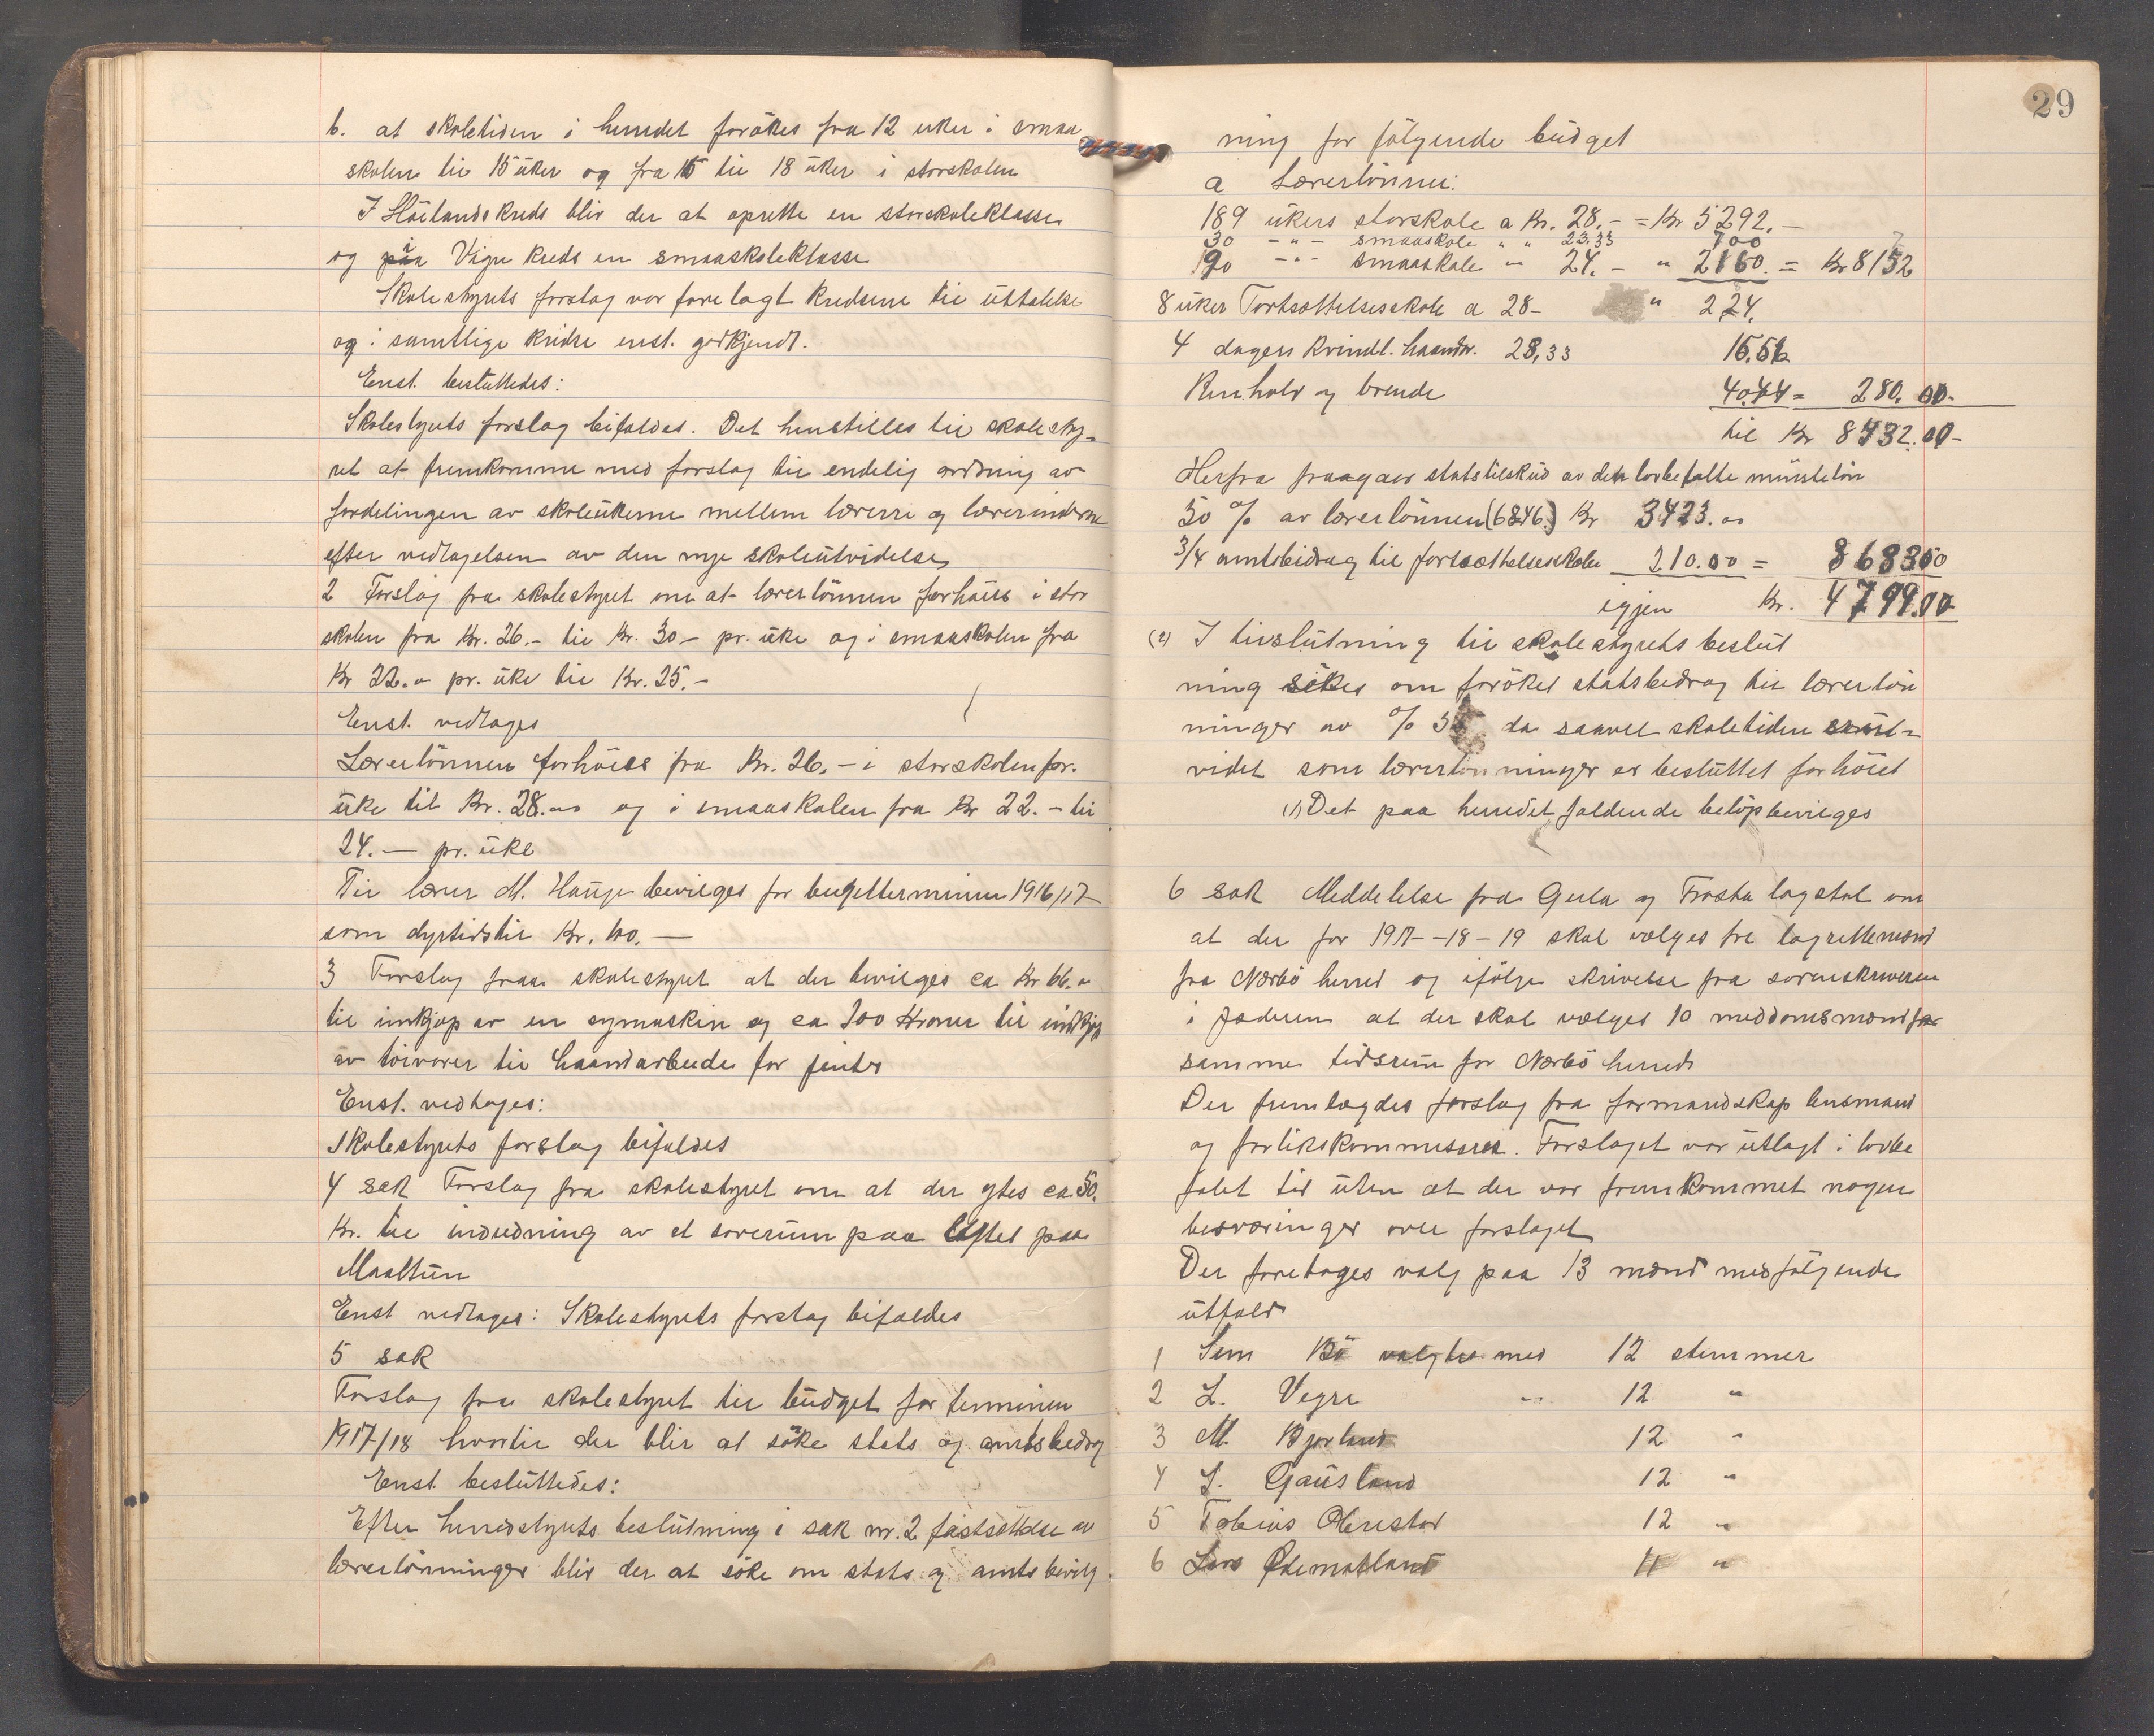 b. at skoletiden i herredet forökes fra 12 uker i smaa
skolen til 15 uker og fra 15 til 18 uker i storskolen
I Höilands kreds blir der at oprette en storskoleklasse
og paa Vigre kreds en smaaskoleklasse
Skolestyrets forslag var forelagt kredsene til uttalelse
og i samtlige kredse enst. godkjendt.
Enst. besluttedes:
Skolestyrets forslag bifaldes. Det henstilles til skolesty-
ret at fremkomme med forslag til endelig ordning av
fordelingen av skoleukerne mellem lærere og lærerinderne
efter vedtagelsen av den nye skoleutvidelse
2 Forslag fra skolestyret om at lærerlönnen forhöies i stor
skolen fra Kr. 26.- til Kr. 30- pr. uke og i smaaskolen fra
Kr 22.- pr. uke til Kr. 25.-
Enst. vedtages
Lærerlönnen forhöies fra Kr. 26.- i storskolen pr.
uke til Kr. 28.00 og i smaaskolen fra Kr 22.- til
24.- pr. uke
Til lærer M. Hauge bevilges for budgetterminen 1916/17
som dyrtidstil Kr. 100.-
3 Forslag fraa skolestyret at der bevilges ca Kr 66.-
til innkjøp av en symaskin og ca 200 Kroner til indkjøp
av töivarer til haandarbeide for jenter
Enst. vedtages:
Skolestyrets forslag bifaldes
4 sak Forslag fra skolestyret om at der ytes ca 50.
Kr. til indredning av et soverum paa loftet paa
Maaltun
Enst vedtages: Skolestyrets forslag bifaldes
5 sak
Forslag fra skolestyret til budget for terminen
1917/18 hvortil der blir at söke stats og amtsbedrag
Enst. besluttedes:
Efter herredstyrets beslutning i sak nr. 2 fastsættelse av
lærerlönninger blir der at söke om stats og amts bevilg
29
ning for fölgende budget
a Lærerlönnen:
189 ukers storskole a Kr. 28.- = Kr 5292.-
30 -"- smaaskole " " 23.33 700
90 -"- smaaskole " 24.- " 2160. = Kr 8152
8 uker Fortsættelsesskole a 28- " 224.
4 dagers kvindl. haandar. 28,33 15.56
Renhold og brende 40.44 = 280.00-
til Kr 8432.00-
Herfra fraagaar statstilskud av den lovbefalte minsteløn
50 % av lærerlönnen (6846.) Kr 3423.00
3/4 amtsbidrag til fortsættelsesskolen 210.00 = 3633.00
igjen Kr. 4799.00
(2) I tilslutning til skolestyrets beslut
ning sökes om foröket statsbedrag til lærerlön
ninger av % da saavel skoletiden ut-
videt som lærerlönninger er besluttet forhöiet
(1) Det paa herredet faldende belöp bevilges
6 sak Meddelelse fra Gula og Frosta lagstol om
at der for 1917--18-19 skal vælges tre lagrettemænd
fra Nærbö herred og ifölge skrivelse fra sorenskriveren
i Jæderen at der skal vælges 10 meddomsmænd for
samme tidsrum for Nærbö herred
Der fremlægdes forslag fra formandskap lensmand
og forlikskommissæren. Forslaget var utlagt i lovbe
falet tid uten at der var fremkommet nogen
besværinger over forslaget
Der foretages valg paa 13 mænd med fölgende
utfald
1 Sem Bö valgtes med 12 stemmer
2 L. Vigre " 12 "
3 M. Bjorland 12 "
4 J. Gausland 12 "
5 Tobias Obrestad 12 "
6 Lars Ødemotland 11 "